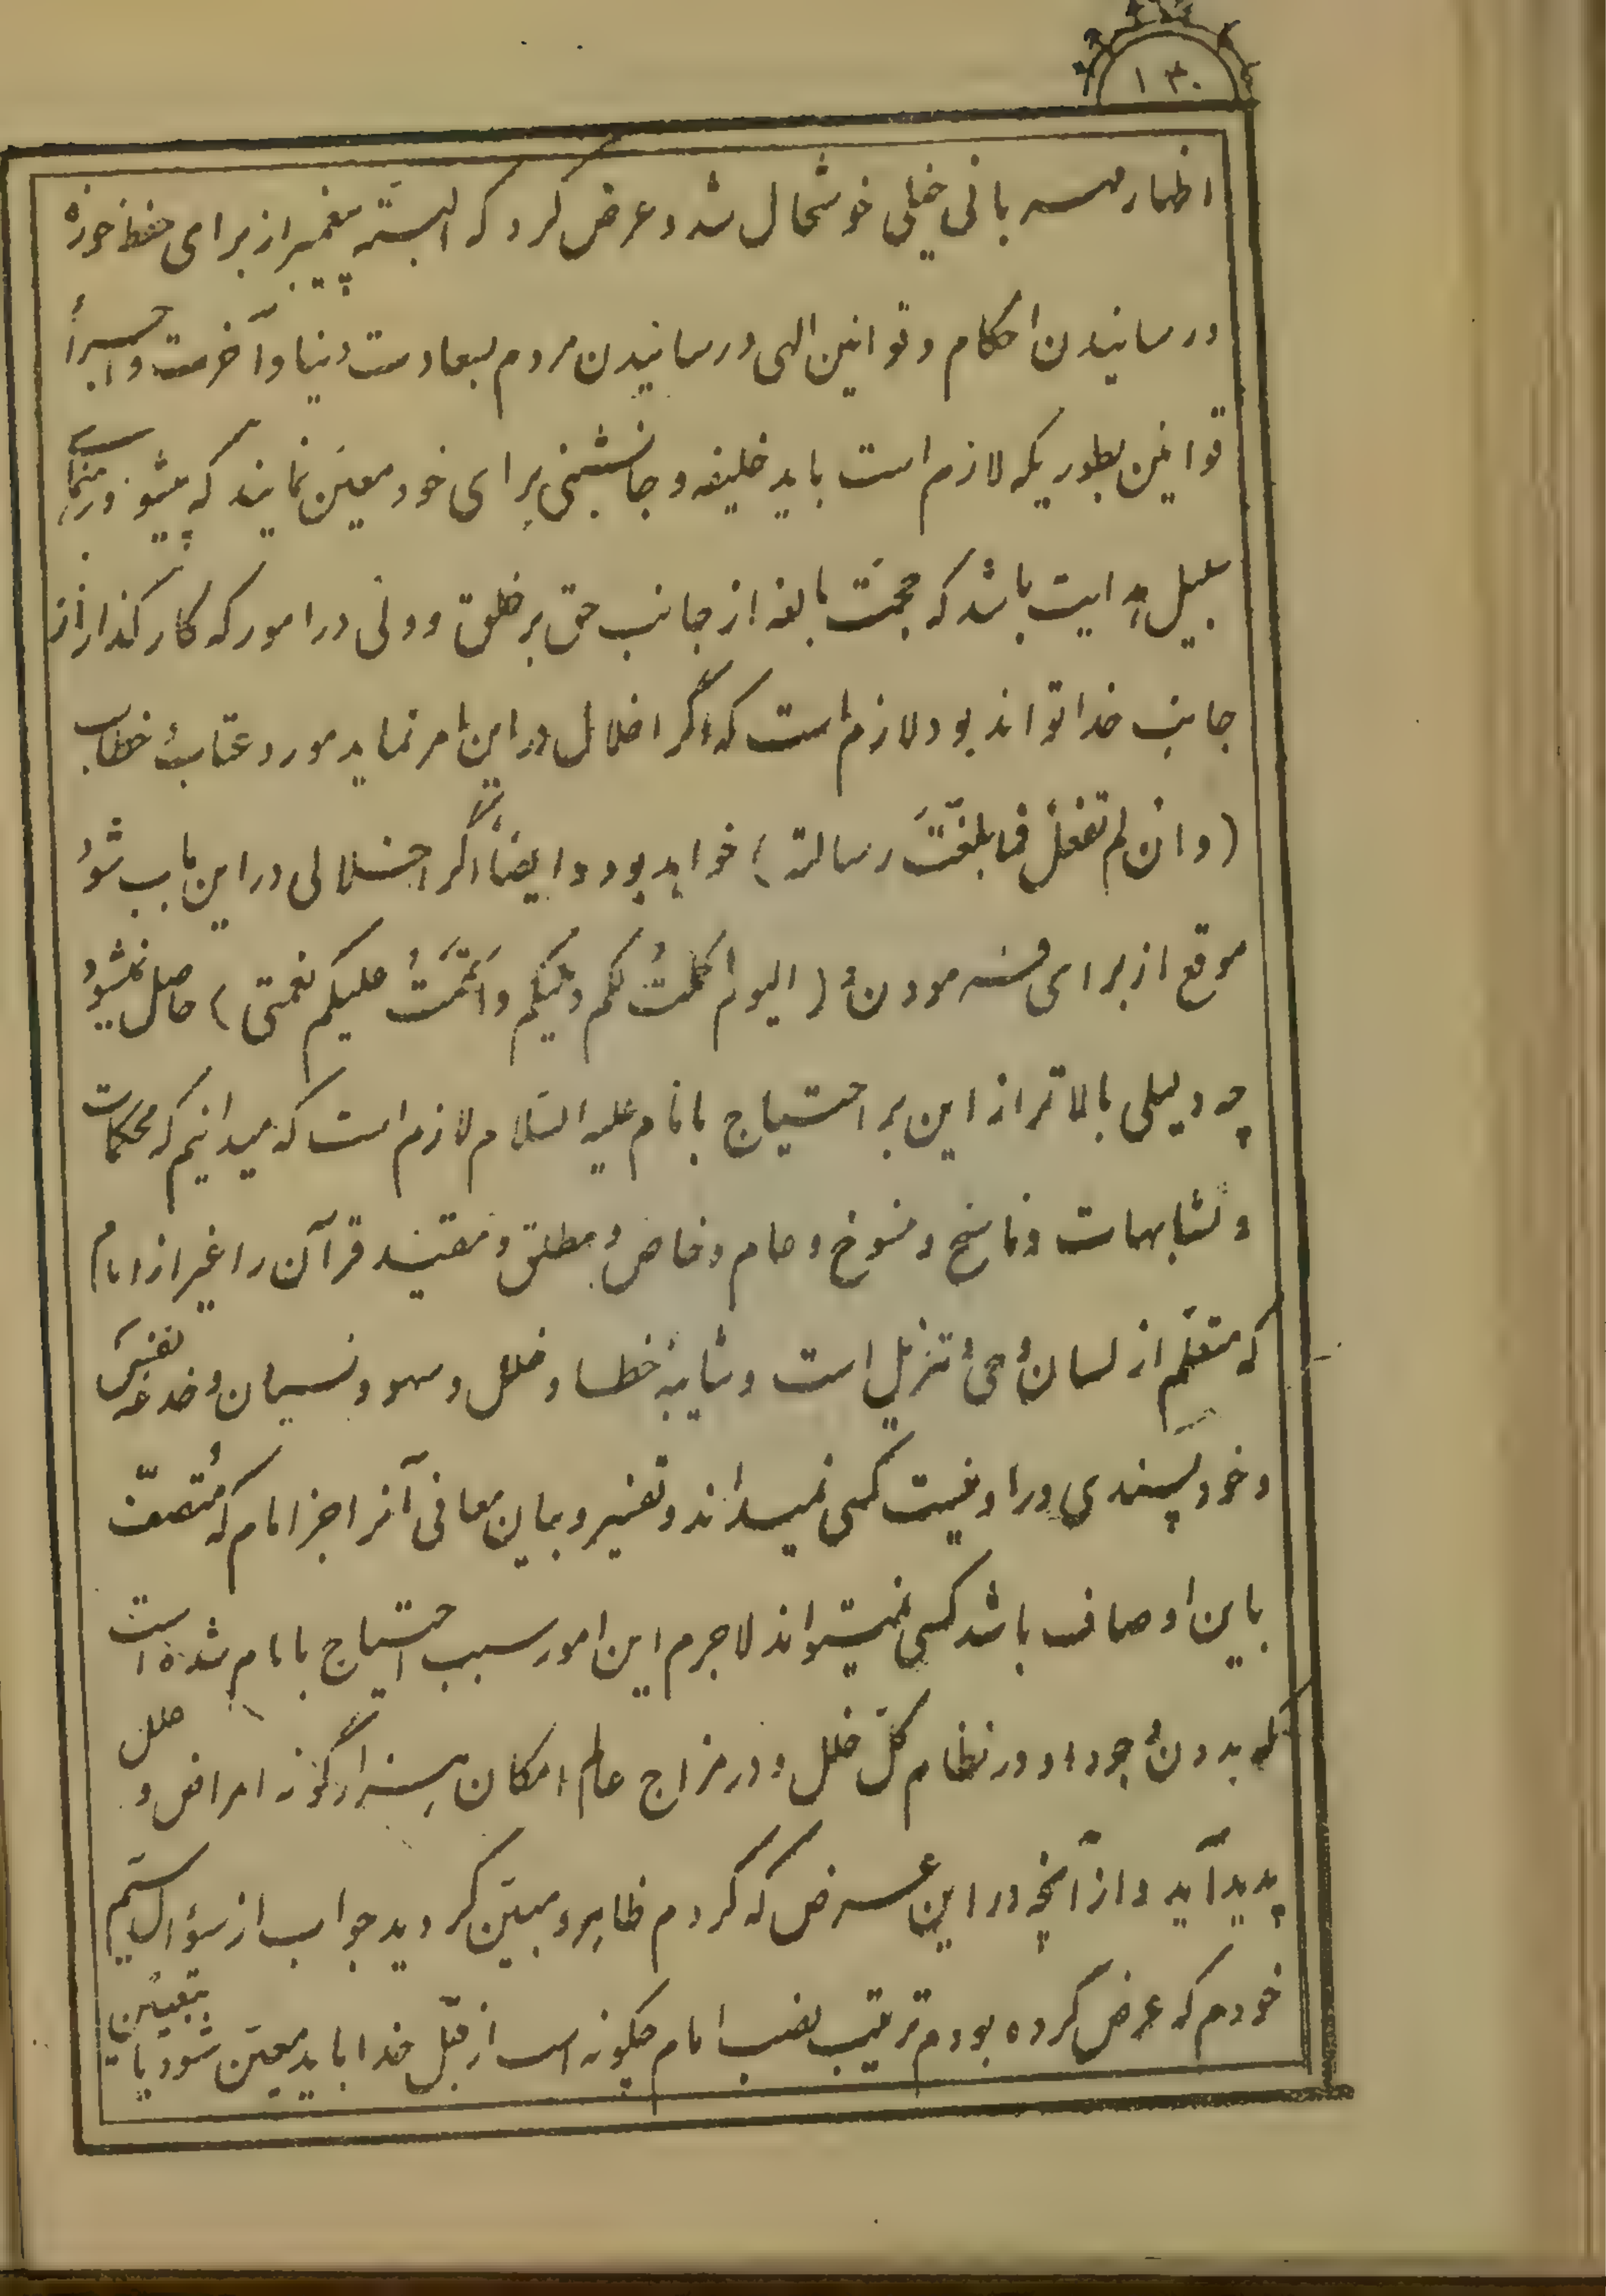 ۱۳۰
اظهار مهربانی خیلی خوشحال شد و عرض کرد که البته پیغمبر از برای حفظ حوزه
و رسانیدن احکام و قوانین الهی و رسانیدن مردم بسعادت دنیا و آخرت و اجرأ
قوانین بطوریکه لازم است باید خلیفه و جانشینی برای خود معین نمایند که پیشوا و رهنمای
سبیل هدایت باشد که حجت بالغه از جانب حق بر خلق و ولی در امور که کارگذار از
جانب خدا تواند بود لازم است که اگر اخلال در این امر نماید مورد عتاب خطاب
(و ان لم تفعل فما بلغت رسالته) خواهد بود و ایضاً اگر اختلالی در این باب شود
موقع از برای فرمودن (الیوم اکملت لکم دینکم و اتممت علیکم نعمتی) حاصل نمیشود
چه دلیلی بالاتر از این بر احتیاج بامام علیه السلام لازم است که میدانیم که محکمات
و متشابهات و ناسخ و منسوخ و عام و خاص و مطلق و مقید قرآن را غیر از امام
که متعلم از لسان وحی و تنزیل است و شایبه خطا و خلل و سهو و نسیان و خدعه نفس
و خودپسندی در او نیست کسی نمیداند و تفسیر و بیان معانی آنرا جز امام که متصف
باین اوصاف باشد کسی نمیتواند لاجرم این امور سبب احتیاج بامام شده است
که بدون وجود او در نظام کل خلل و در مزاج عالم امکان هزار گونه امراض و علل
پدید آید و از آنچه در این عرض که کردم ظاهر و مبین گردید جواب از سؤال سیم
خودم که عرض کرده بودم ترتیب نصب امام چگونه است از قبل خدا باید معین شود یا بتعیین